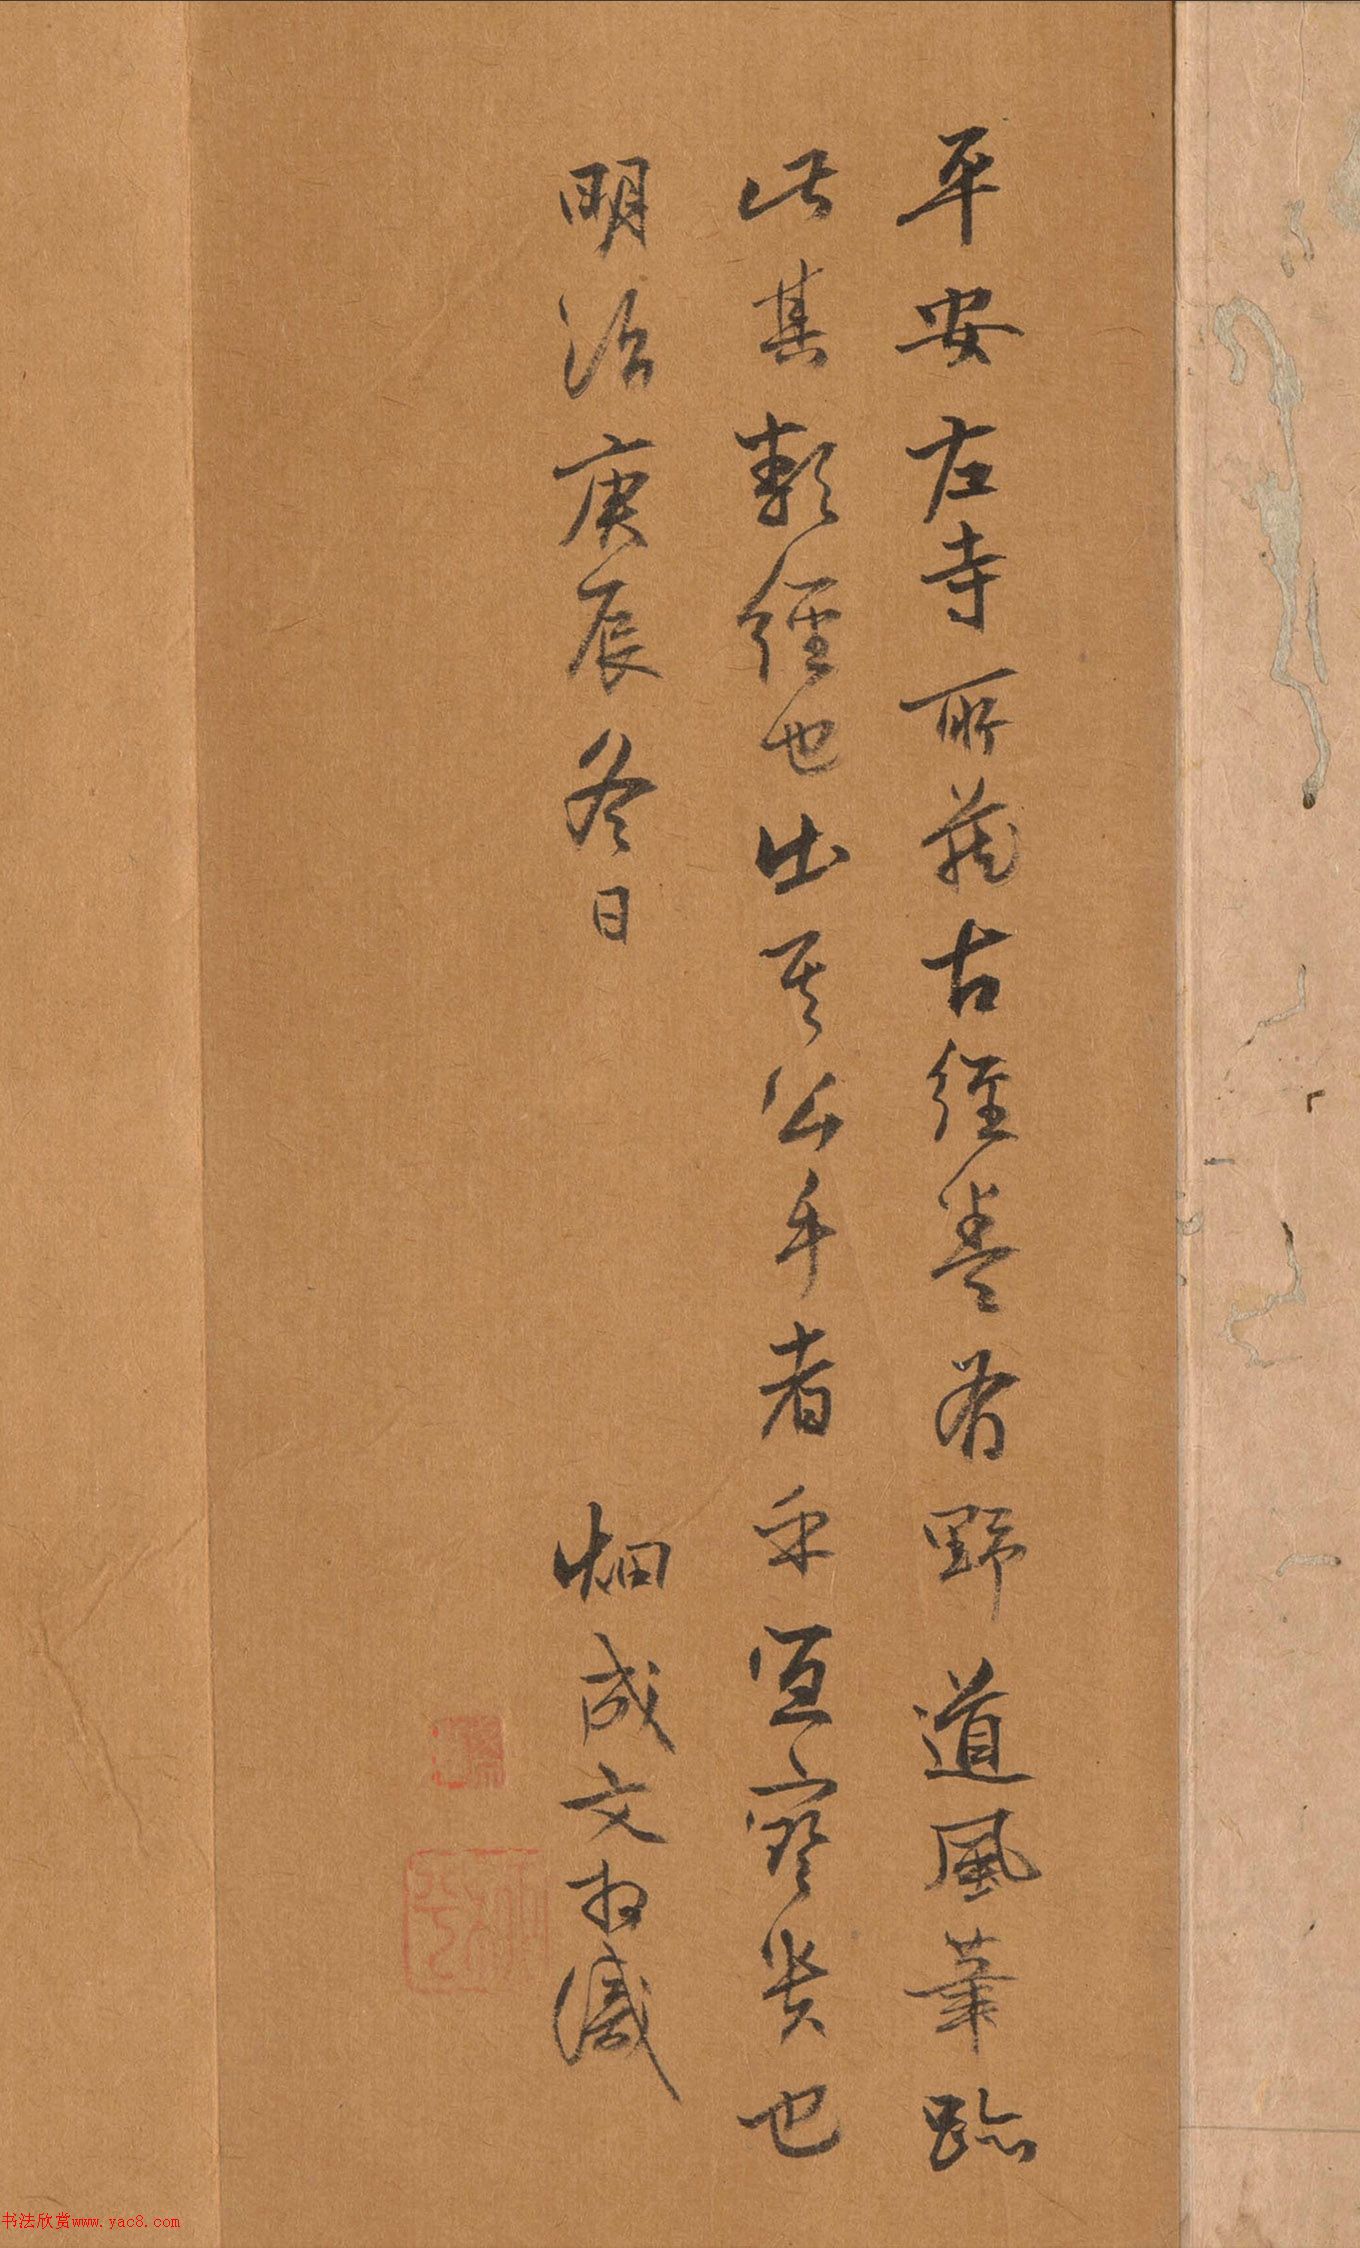 平安左寺所藏古經卷有野道風筆跡
此其類經也出其公手者乎宜寶貴也
明治庚辰冬日
畑成文拜識
书法欣赏www.yac8.com